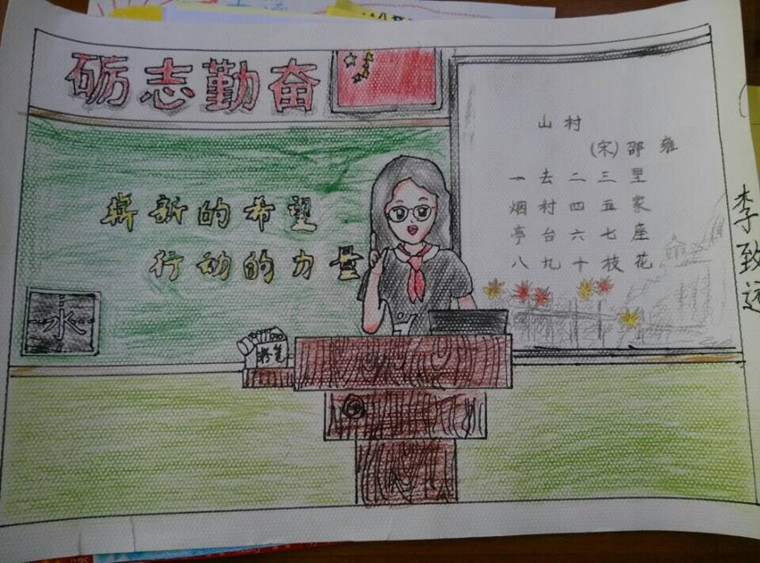 砺志勤奋
崭新的希望
行动的力量
水
粉笔
山村
(宋)邵雍
一去二三里
烟村四五家
亭台六七座
八九十枝花
李致远